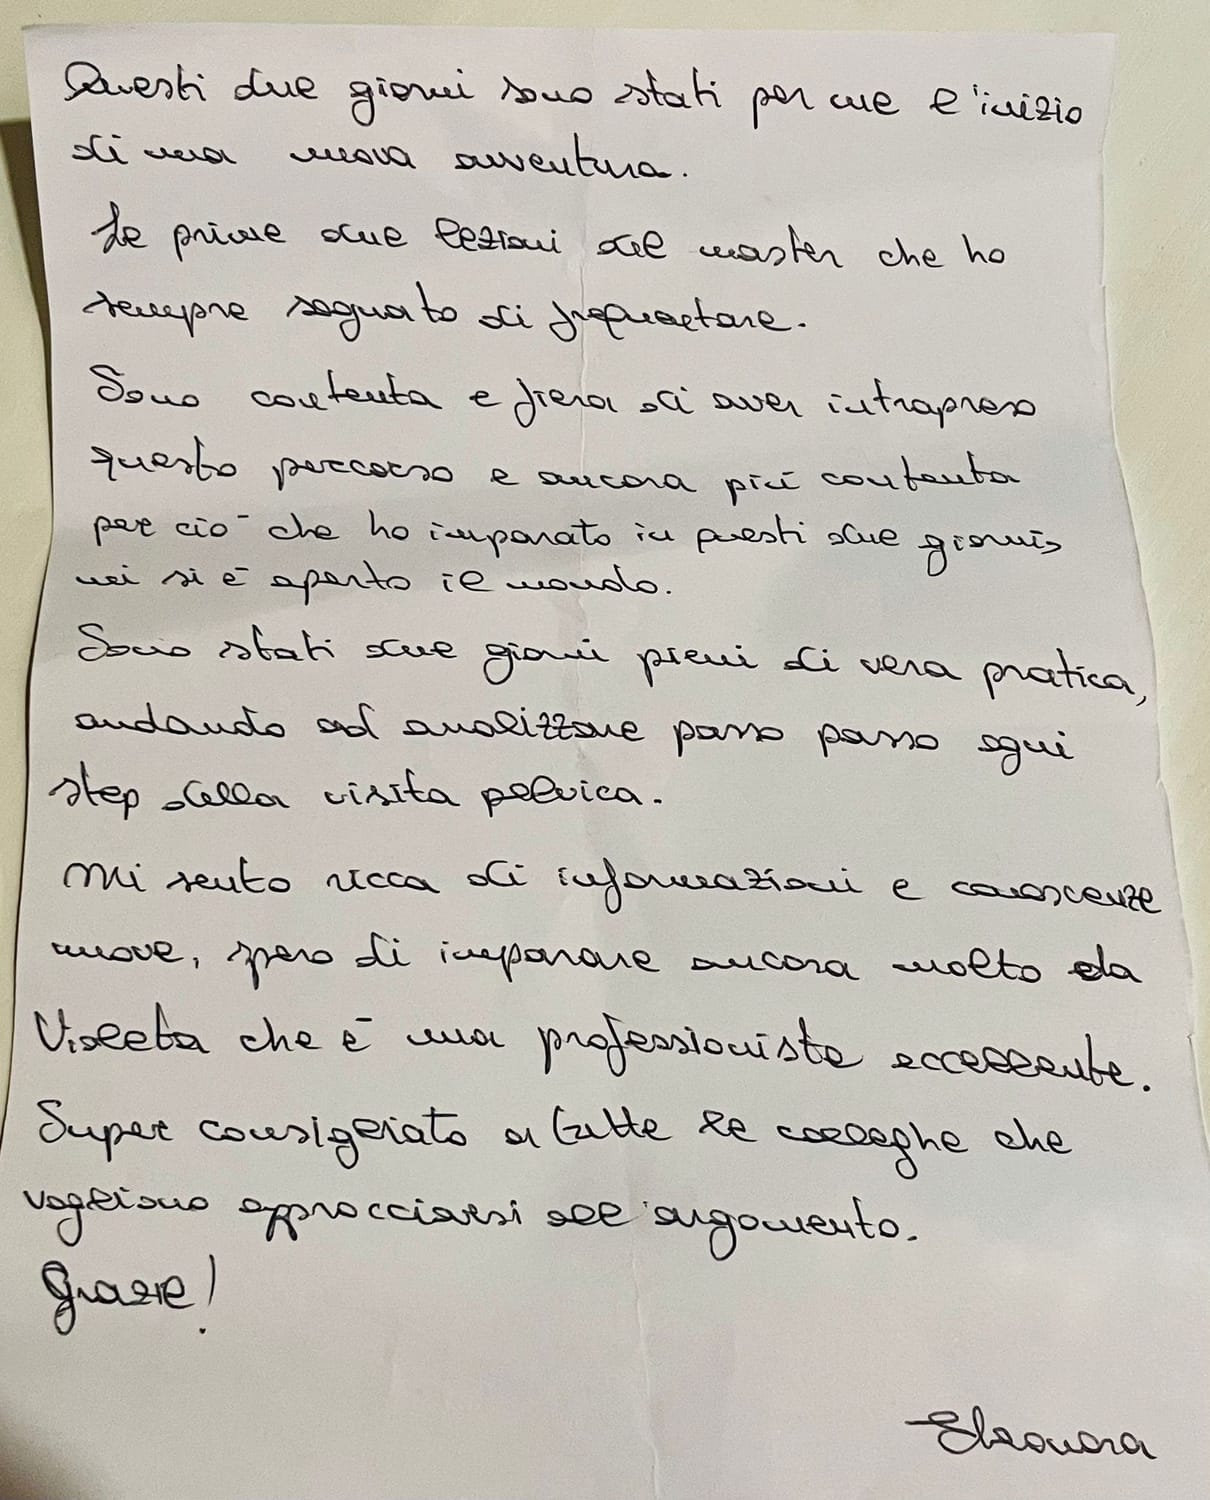 Questi due giorni sono stati per me l'inizio
di una nuova avventura.
Le prime due lezioni del master che ho
sempre sognato di frequentare.
Sono contenta e fiera di aver intrapreso
questo percorso e ancora più contenta
per ciò che ho imparato in questi due giorni,
mi si è aperto il mondo.
Sono stati due giorni pieni di vera pratica,
andando ad analizzare passo passo ogni
step della visita pelvica.
Mi sento ricca di informazioni e conoscenze
nuove, spero di imparare ancora molto da
Violeta che è una professionista eccellente.
Super consigliato a tutte le colleghe che
vogliono approcciarsi all'argomento.
Grazie!
Eleonora